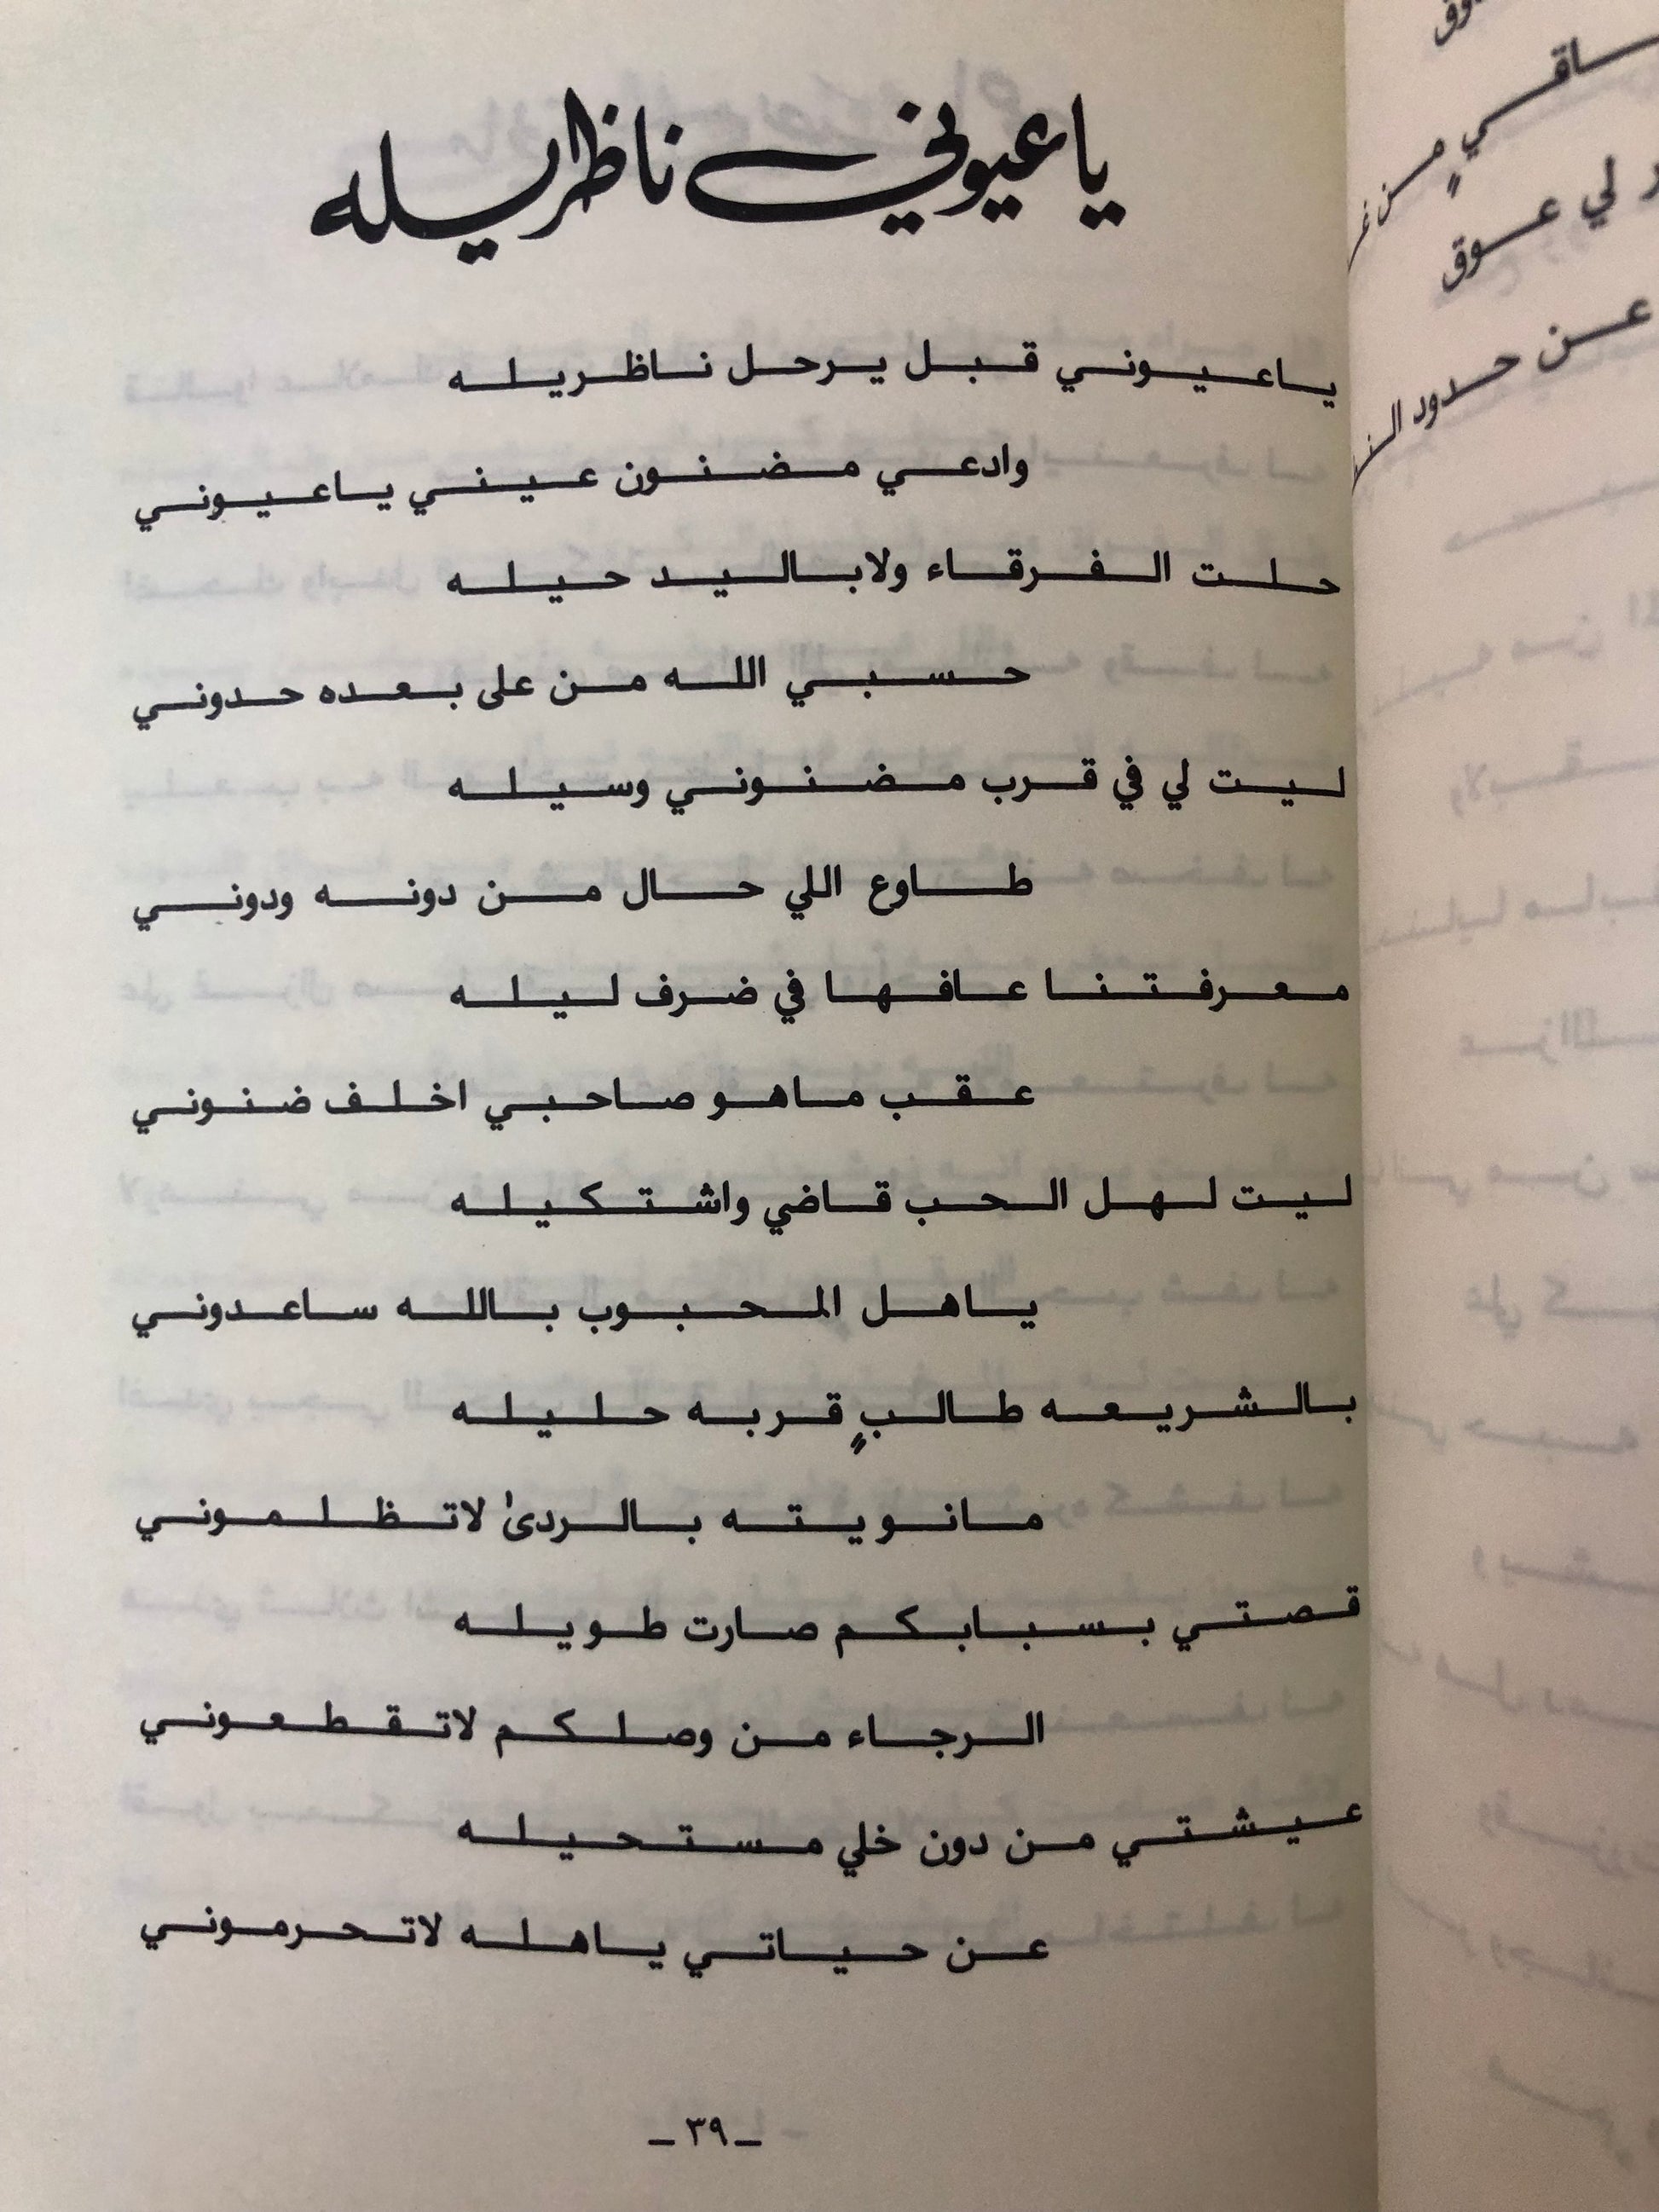 ياعيوني ناظريله
ياعيوني قبل يرحل ناظريله
وادعي مضنون عيني ياعيوني
حلت الفرقاء ولاباليد حيله
حسبي الله من على بعده حدوني
ليت لي في قرب مضنوني وسيله
طاوع اللي حال من دونه ودوني
معرفتنا عافها في ضرف ليله
عقب ماهو صاحبي اخلف ضنوني
ليت لهل الحب قاضي واشتكيله
ياهل المحبوب بالله ساعدوني
بالشريعه طالبٍ قربه حليله
مانويته بالردىٰ لاتظلموني
قصتي بسبابكم صارت طويله
الرجاء من وصلكم لاتقطعوني
عيشتي من دون خلي مستحيله
عن حياتي ياهله لاتحرموني
ـ ٣٩ ـ
ساقيٍ من
لي عوق
عن حدود